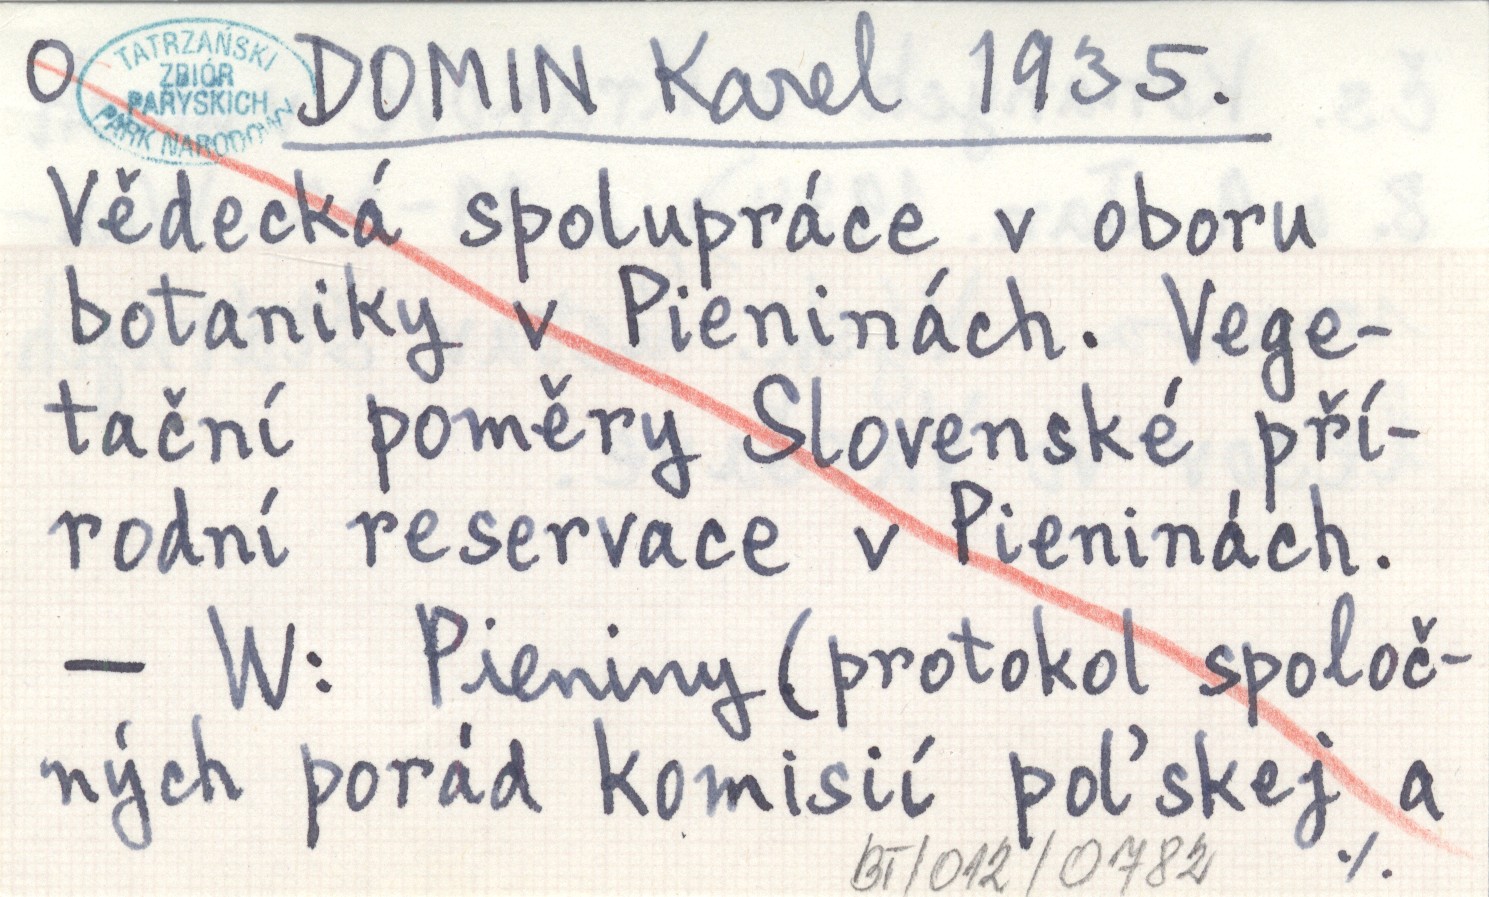 O DOMIN Karel 1935.
TATRZAŃSKI
ZBIÓR
PARYSKICH
PARK NARODOWY
Vědecká spolupráce v oboru
botaniky v Pieninách. Vege-
tační poměry Slovenské pří-
rodní reservace v Pieninách.
— W: Pieniny (protokol spoloč-
ných porád komisií poľskej a
BT/012/0782 ./.